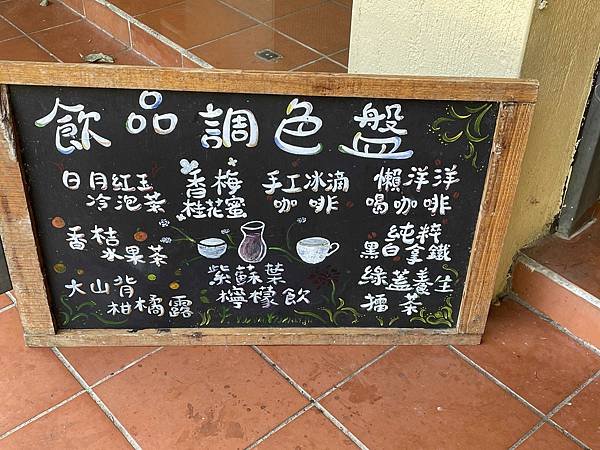 飲品調色盤
日月紅玉
冷泡茶
香梅
桂花蜜
手工冰滴
咖啡
懶洋洋
喝咖啡
香桔
水果茶
純粹
黑白拿鐵
紫蘇葉
檸檬飲
大山背
柑橘露
綠蓋養生
擂茶